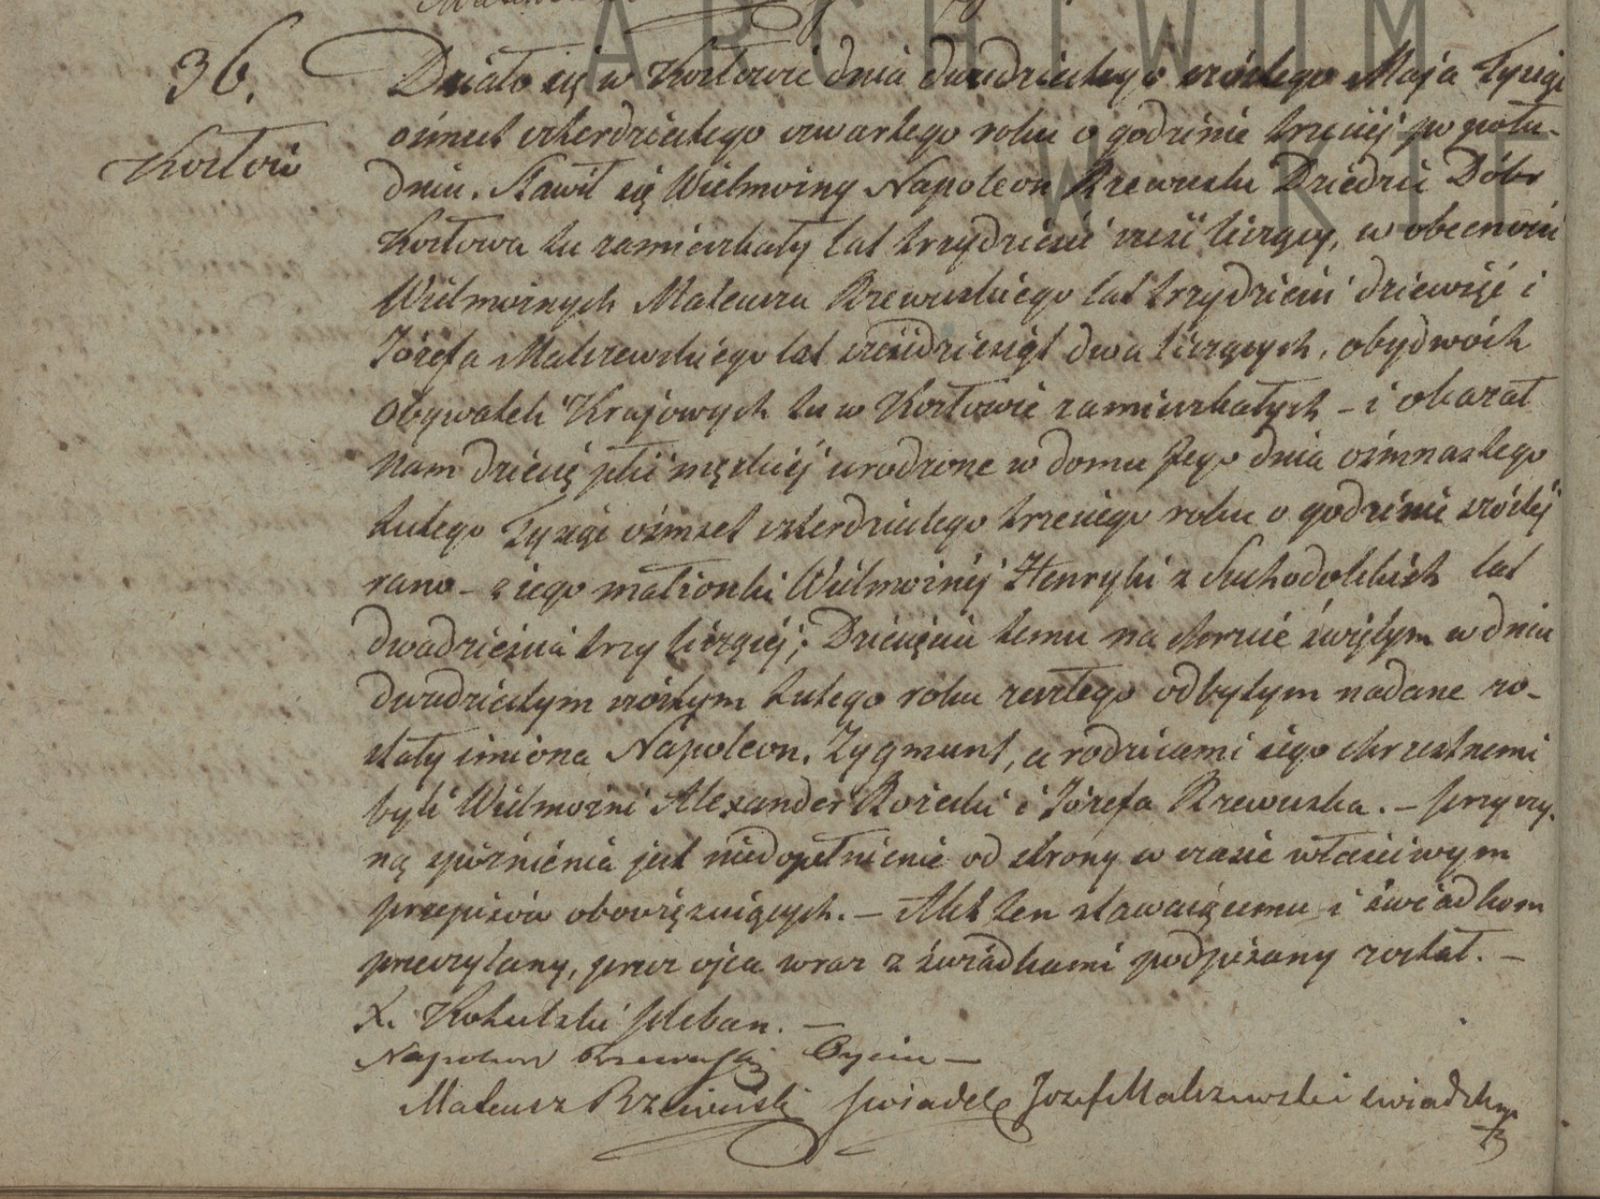 ARCHIWUM
W KIE
36.
Kozłów
Działo się w Kozłowie dnia dwudziestego szóstego Maja Tysiąc
ośmset czterdziestego czwartego roku o godzinie trzeciej po połu-
dniu. Stawił się Wielmożny Napoleon Rzewuski Dziedzic Dóbr
Kozłowa tu zamieszkały lat trzydzieści sześć liczący, w obecności
Wielmożnych Mateusza Rzewuskiego lat trzydzieści dziewięć i
Józefa Malczewskiego lat sześćdziesiąt dwa liczących, obydwóch
Obywateli Krajowych tu w Kozłowie zamieszkałych – i okazał
Nam dziecię płci męzkiej urodzone w domu Jego dnia ośmnastego
Lutego Tysiąc ośmset czterdziestego trzeciego roku o godzinie szóstej
rano – z iego małżonki Wielmożnej Henryki z Suchodolskich lat
dwadzieścia trzy liczącej; Dziecięciu temu na chrzcie świętym w dniu
dwudziestym szóstym Lutego roku zeszłego odbytym nadane zo-
stały imiona Napoleon, Zygmunt, a rodzicami iego chrzestnemi
byli Wielmożni Alexander Rożecki i Józefa Rzewuska. – przyczy-
ną zpóźnienia jest niedopełnienie od strony w czasie właściwym
przepisów obowięzuiących. – Akt ten stawaiącemu i świadkom
przeczytany, przez ojca wraz z świadkami podpisany został. –
X. Kokulski Pleban. –
Napoleon Rzewuski Oyciec –
Mateusz Rzewuski świadek Jozef Malczewski swiadek